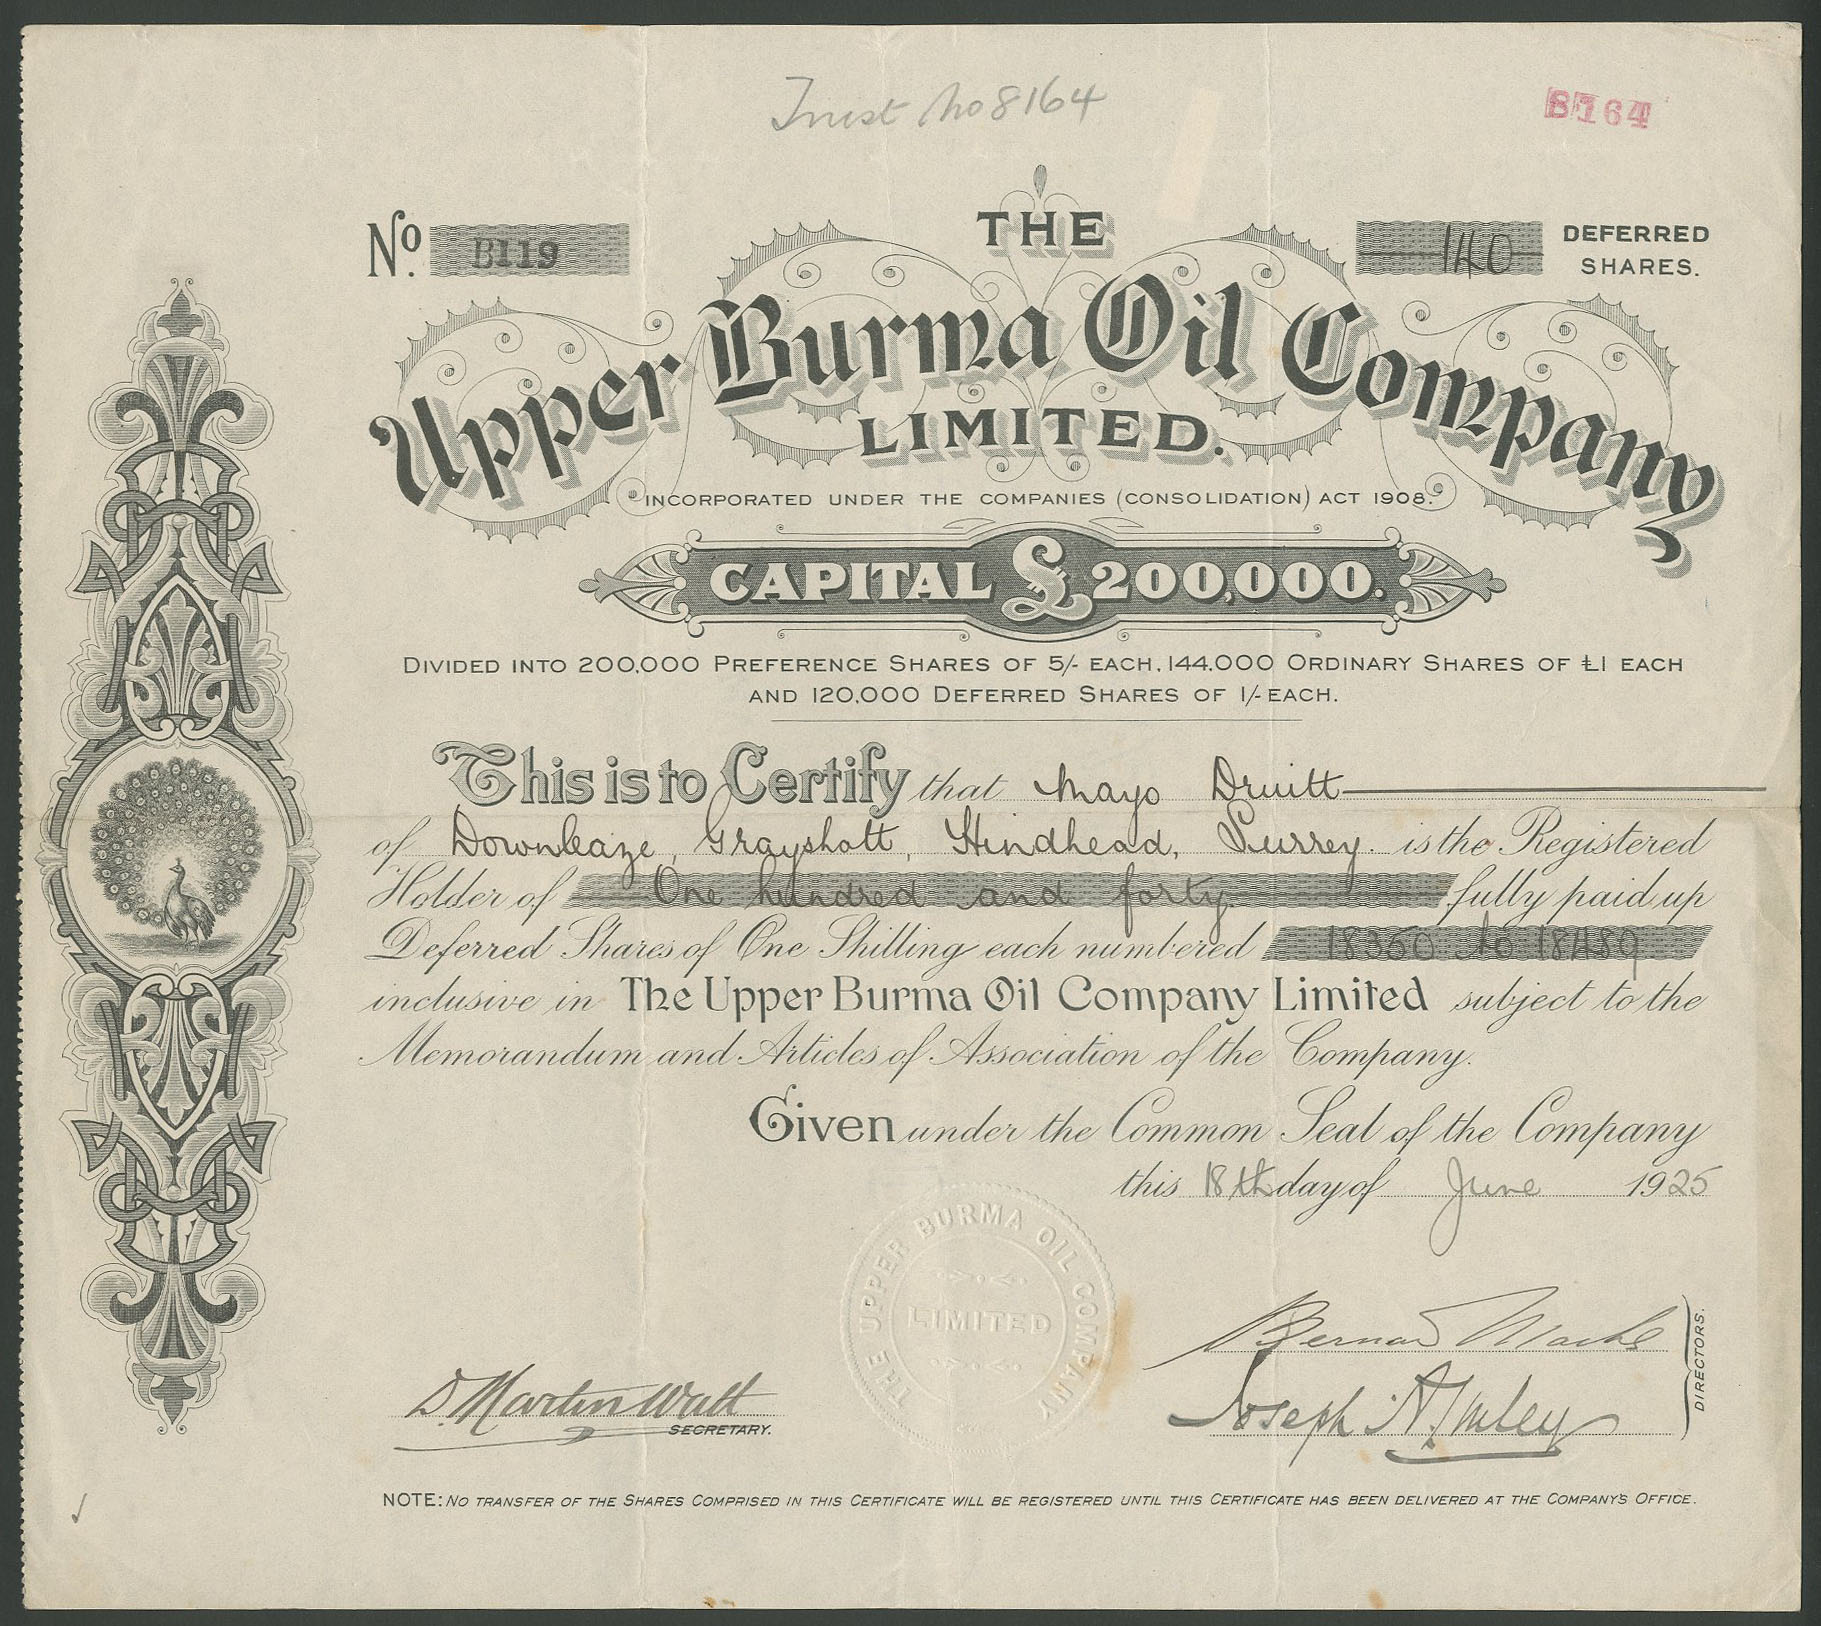 Trust No 8164
8164
No. B119
140 DEFERRED SHARES.
THE
Upper Burma Oil Company
LIMITED.
INCORPORATED UNDER THE COMPANIES (CONSOLIDATION) ACT 1908.
CAPITAL £200,000.
DIVIDED INTO 200,000 PREFERENCE SHARES OF 5/- EACH, 144,000 ORDINARY SHARES OF £1 EACH
AND 120,000 DEFERRED SHARES OF 1/- EACH.
This is to Certify that Mayo Druitt
of Downleaze, Grayshott, Hindhead, Surrey. is the Registered
Holder of One hundred and forty fully paid up
Deferred Shares of One Shilling each numbered 18350 to 18489
inclusive in The Upper Burma Oil Company Limited subject to the
Memorandum and Articles of Association of the Company.
Given under the Common Seal of the Company
this 18th day of June 1925
THE UPPER BURMA OIL COMPANY
LIMITED
Bernard
Joseph
DIRECTORS.
D. Martin Watt
SECRETARY.
NOTE: NO TRANSFER OF THE SHARES COMPRISED IN THIS CERTIFICATE WILL BE REGISTERED UNTIL THIS CERTIFICATE HAS BEEN DELIVERED AT THE COMPANY'S OFFICE.